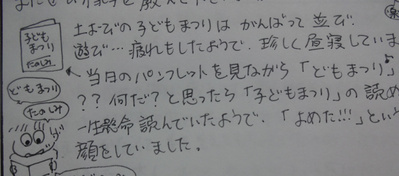 子ども
まつり
たのしみ
土よびの子どもまつりは がんばって 並び
遊び…疲れもしたようで、珍しく昼寝していま
当日のパンフレットを見ながら「どもまつり」
?? 何だ?と思ったら「子どもまつり」の読め
一生懸命 読んでいたようで、「よめた!!!」とい
顔をしていました。
どもまつり
たのしみ